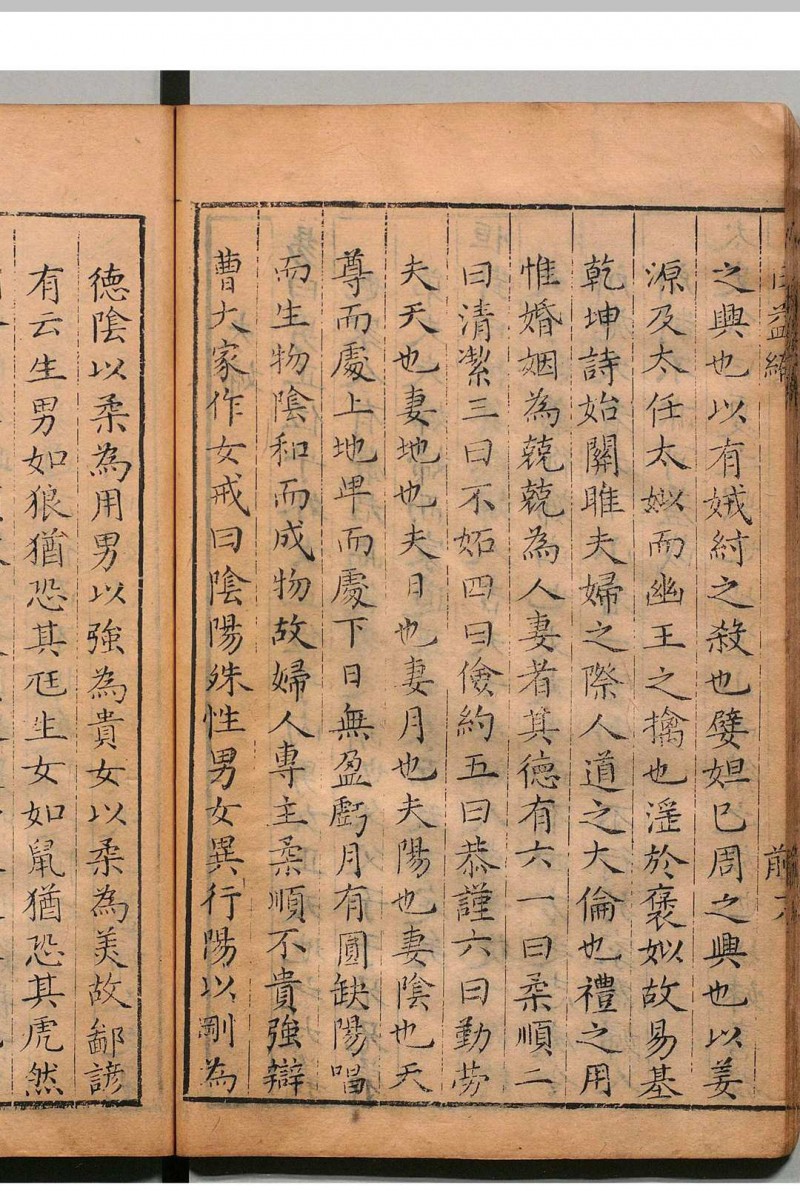 之興也以有娀紂之殺也嬖妲己周之興也以姜
源及太任太姒而幽王之擒也滛於褒姒故易基
乾坤詩始關雎夫婦之際人道之大倫也禮之用
惟婚姻為兢兢為人妻者其德有六一曰柔順二
曰清潔三曰不妬四曰儉約五曰恭謹六曰勤劳
夫天也妻地也夫日也妻月也夫陽也妻陰也天
尊而處上地卑而處下日無盈虧月有圓缺陽唱
而生物陰和而成物故婦人專主柔順不貴強辯
曹大家作女戒曰陰陽殊性男女異行陽以剛為
德陰以柔為用男以強為貴女以柔為美故鄙諺
有云生男如狼猶恐其尫生女如鼠猶恐其虎然